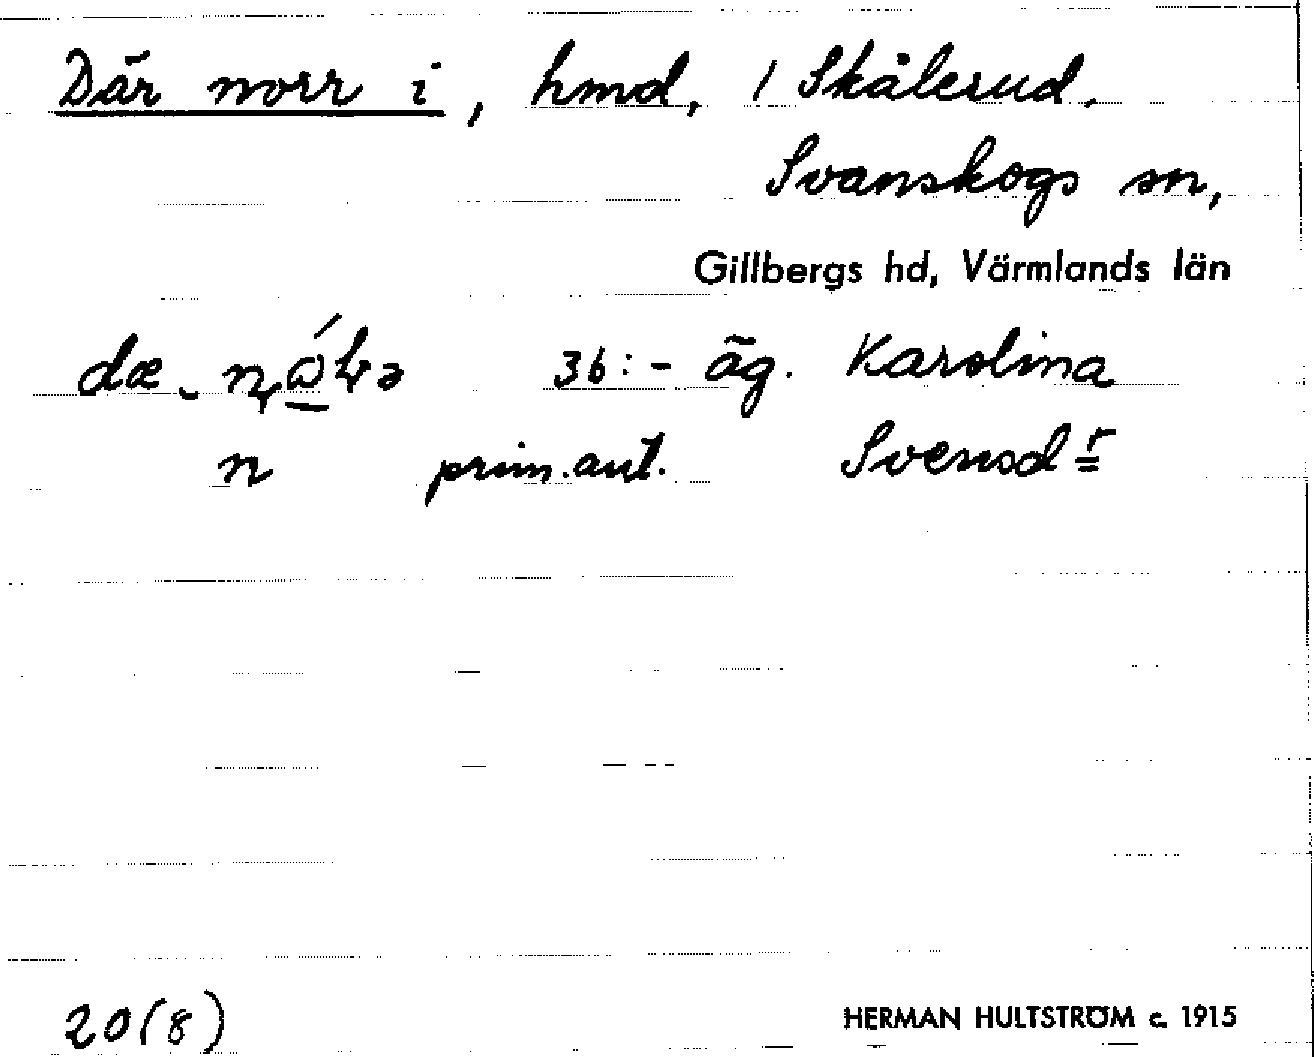 Där norr i, hmd, / Skålerud.
Svanskogs sn,
Gillbergs hd, Värmlands län
dæ 36:- äg. Karolina
n prim.ant. Svensdr
20(8) HERMAN HULTSTRÖM c. 1915